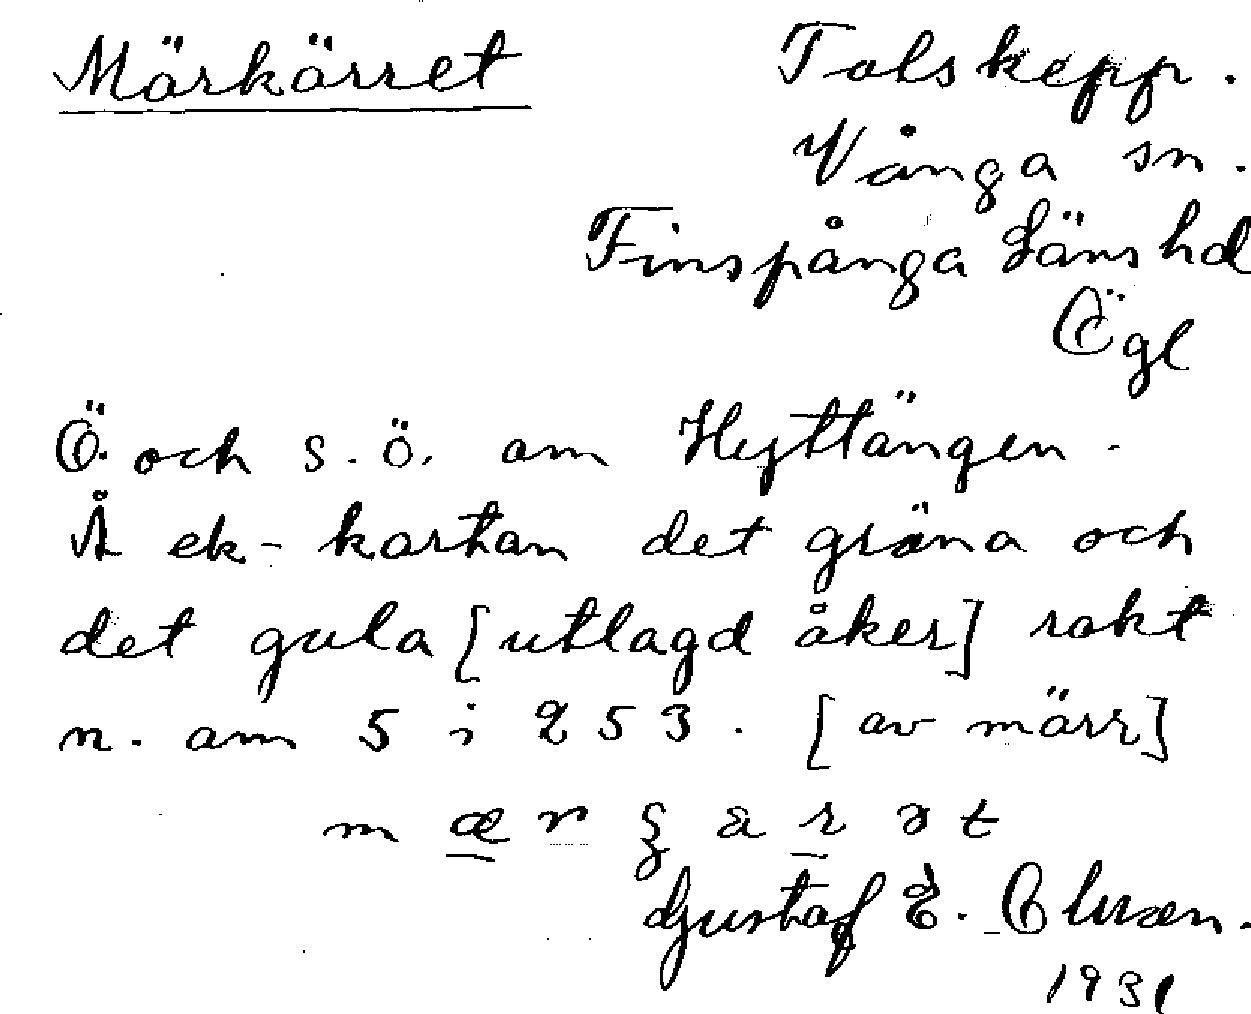 Märkärret
Tolskepp.
Vånga sn.
Finspånga Läns hd
Ögl
Ö. och s.ö. om Hyttängen.
Å ek-kartan det gröna och
det gula [utlagd åker] rakt
n. om 5 i 253. [av märr]
Gustaf E.
1931